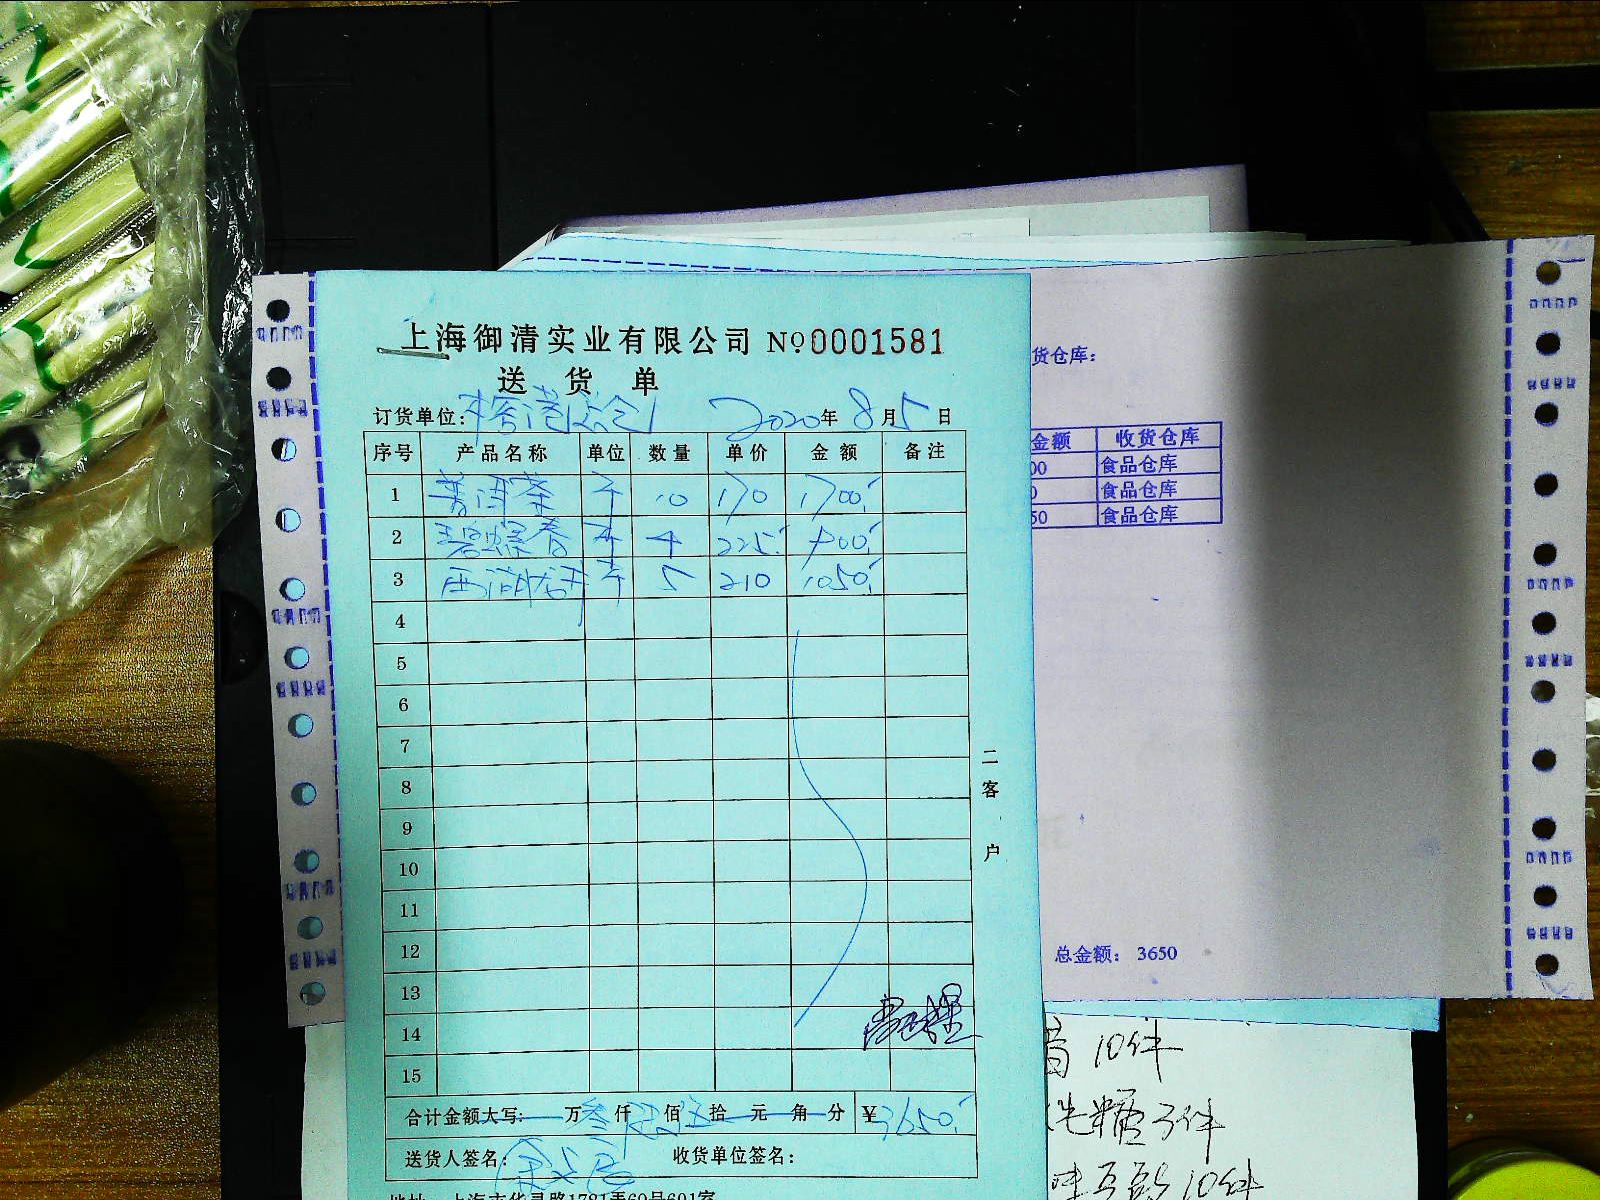 上海御清实业有限公司 №0001581
送货单
订货单位: 2020年8月5日
序号 产品名称 单位 数量 单价 金额 备注
1 普洱茶 斤 10 170 1700
2 碧螺春 斤 4 225 900
3 西湖龙井 斤 5 210 1050
4
5
6
7
8
9
10
11
12
13
14
15
合计金额大写: 万叁仟陆佰伍拾 元 角 分 ¥3650
送货人签名: 收货单位签名:
二客户
货仓库:
金额 收货仓库
00 食品仓库
食品仓库
50 食品仓库
总金额: 3650
10件
糖3件
10件